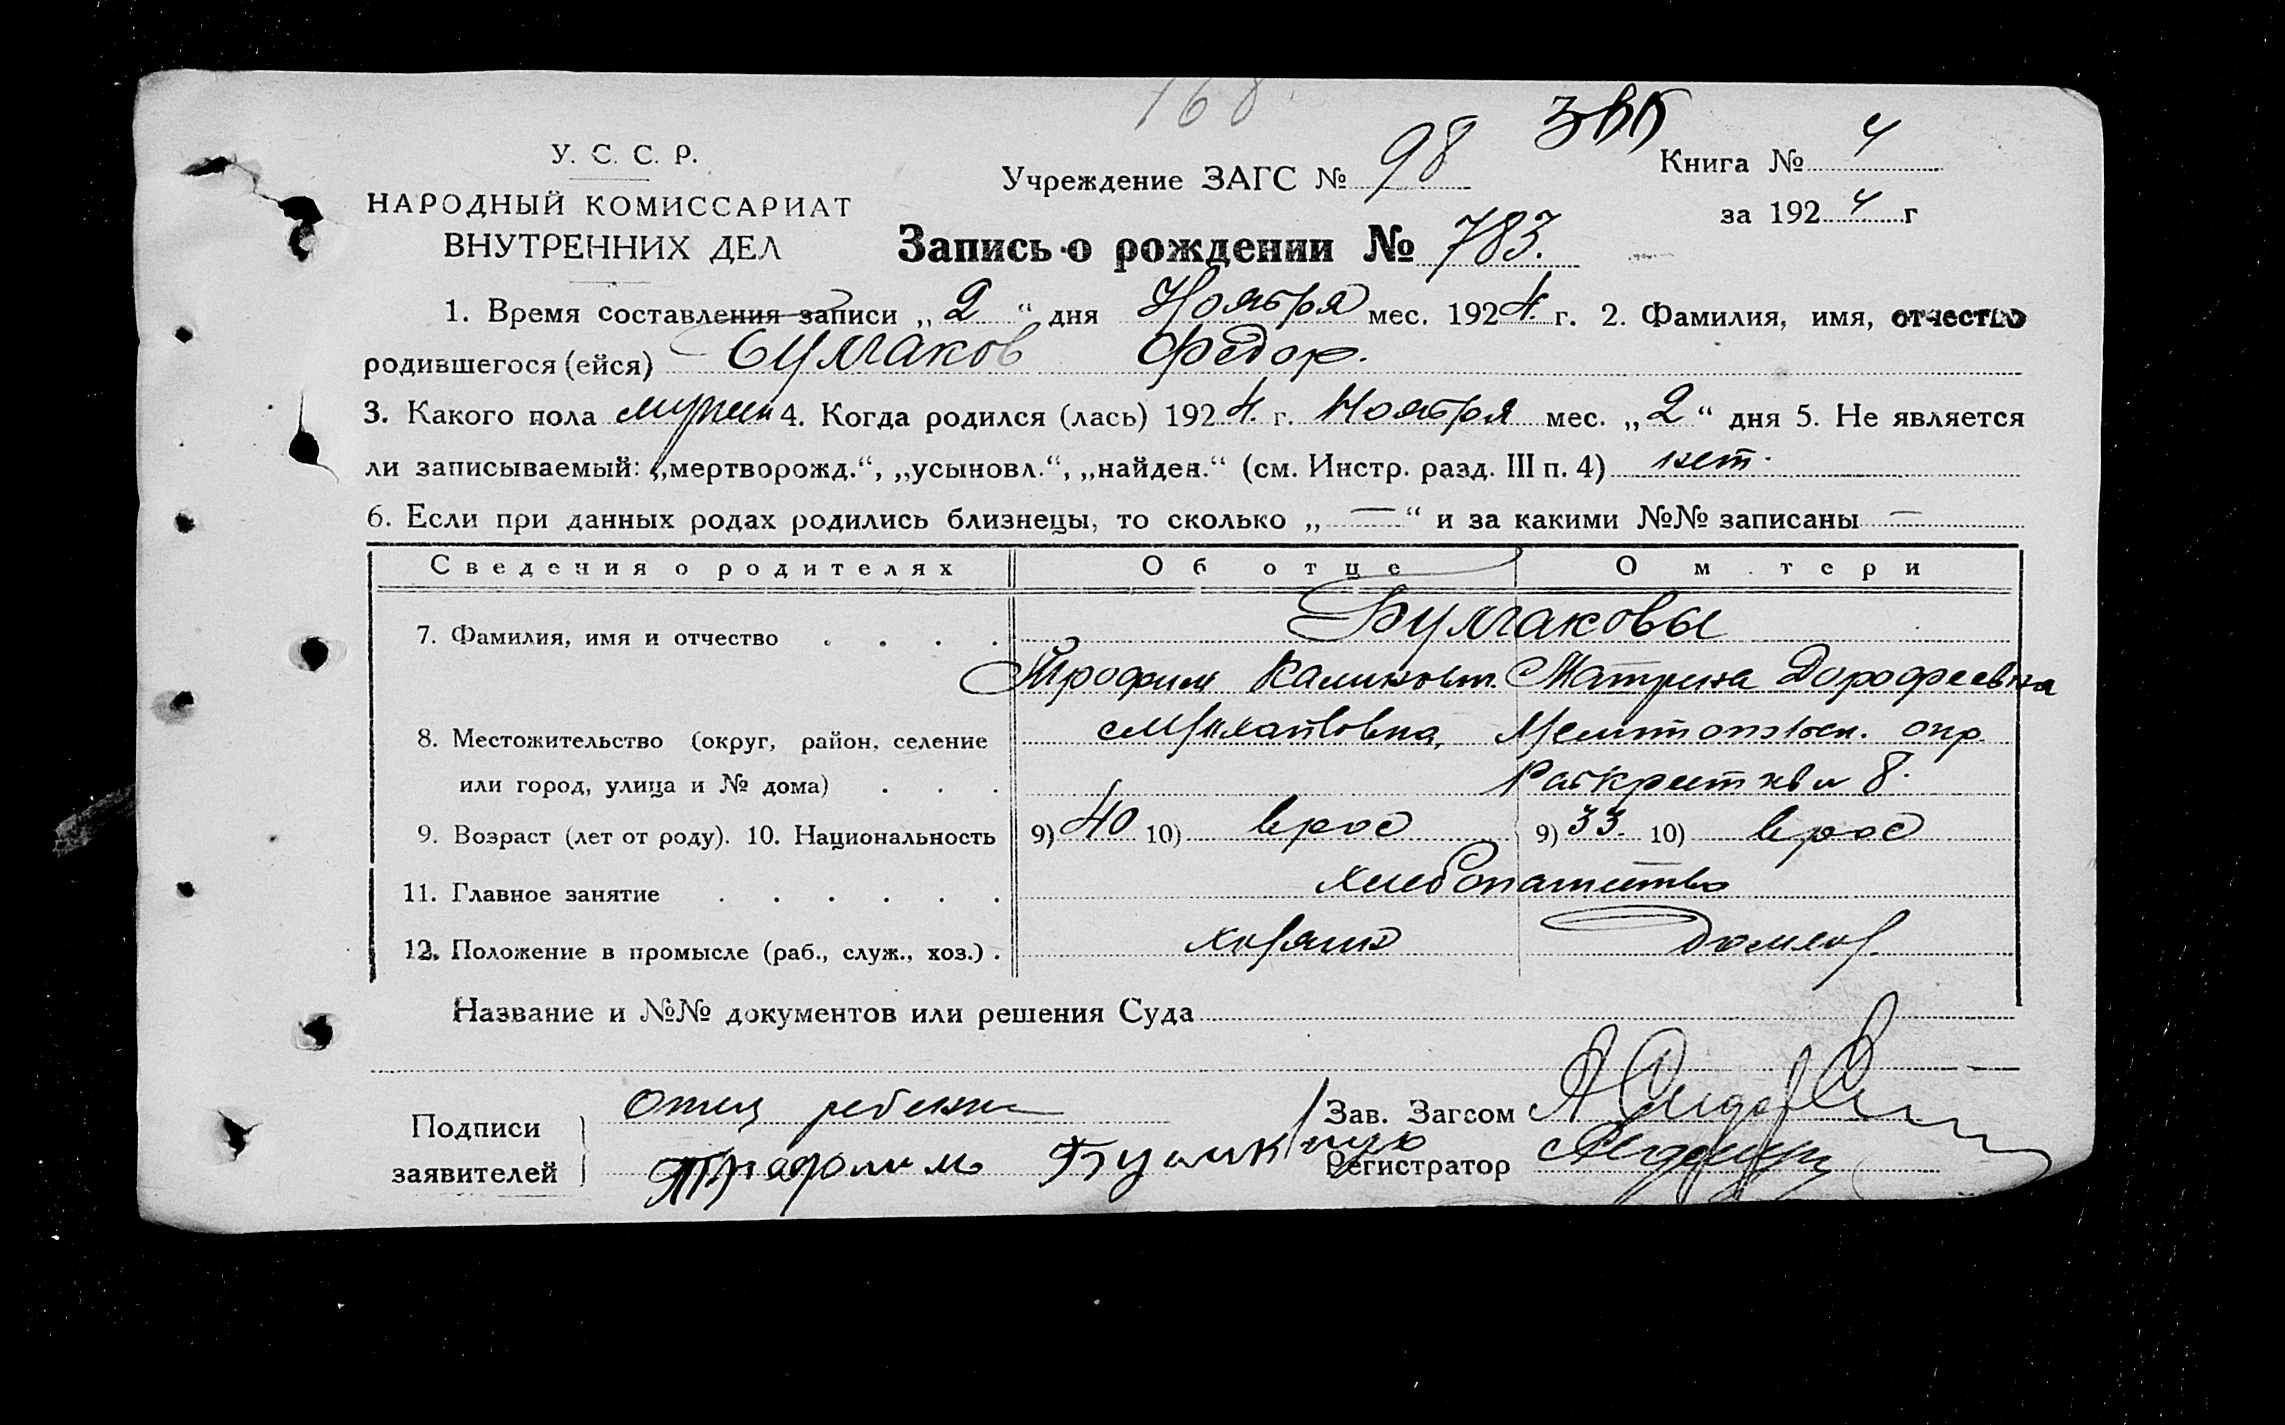 168
ЗВК
У. С. С. Р.
НАРОДНЫЙ КОМИССАРИАТ
ВНУТРЕННИХ ДЕЛ
Учреждение ЗАГС № 98
Книга № 4
за 1924 г
Запись о рождении № 783.
1. Время составления записи „2“ дня Ноября мес. 1924. г. 2. Фамилия, имя, отчество
родившегося (ейся) Булгаков Федор.
3. Какого пола мужск 4. Когда родился (лась) 1924. г. Ноября мес. „2“ дня 5. Не является
ли записываемый: „мертворожд.“, „усыновл.“, „найден.“ (см. Инстр. разд. III п. 4) нет.
6. Если при данных родах родились близнецы, то сколько „—“ и за какими №№ записаны —
Сведения о родителях Об отце О м тери
7. Фамилия, имя и отчество . . . . Булгаковы
Трофим Матрена Дорофеевна
8. Местожительство (округ, район, селение окр.
или город, улица и № дома) . . . 8.
9. Возраст (лет от роду). 10. Национальность 9) 40 10) врос 9) 33. 10) врос
11. Главное занятие . . . . . . хлебопашество
12. Положение в промысле (раб., служ., хоз.) . хозяин домхоз.
Название и №№ документов или решения Суда
Подписи
заявителей
Отец ребенка
Зав. Загсом
Регистратор